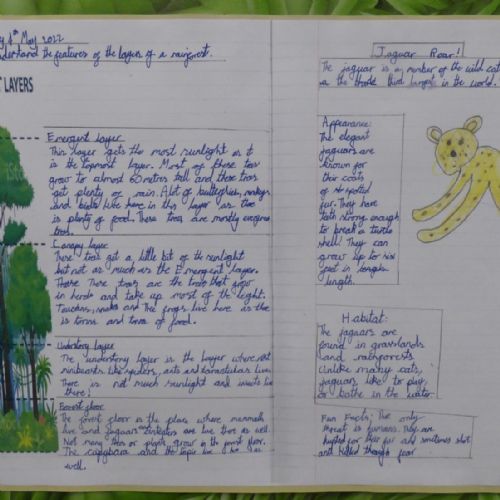 4th May 2022
understand the features of the layers of a rainforest.
LAYERS
Emergent layer
This layer gets the most sunlight as it
is the topmost layer. Most of these trees
grow to almost 60 metres tall and these trees
get plenty of rain. A lot of butterflies, monkeys
and birds live here in this layer as there
is plenty of food. These trees are mostly evergreen
trees.
Canopy layer
These trees get a little bit of the sunlight
but not as much as the Emergent layer.
These trees are the trees that grow
in herds and take up most of the light.
Toucans, snakes and tree frogs live here as there
is tonnes and tonnes of food.
Understory layer
The understory layer is the layer where
minibeasts like spiders, ants and tarantulas live.
There is not much sunlight and insects live
there!
Forest floor
The forest floor is the place where mammals
live and jaguars are live there as well.
Not many trees or plants grow in the forest floor.
The capybara and the tapir live here as
well.
Jaguar Roar!
The jaguar is a member of the wild cat
the third largest in the world.
Appearance:
The elegant
jaguars are
known for
their coats
of spotted
fur. They have
teeth strong enough
to break a turtle
shell. They can
grow up to six
feet in
length.
Habitat:
The jaguars are
found in grasslands
and rainforests.
Unlike many cats,
jaguars like to play
or bathe in the water.
Fun Facts: The only
threat is humans. They are
hunted for their fur and sometimes shot
and killed through fear